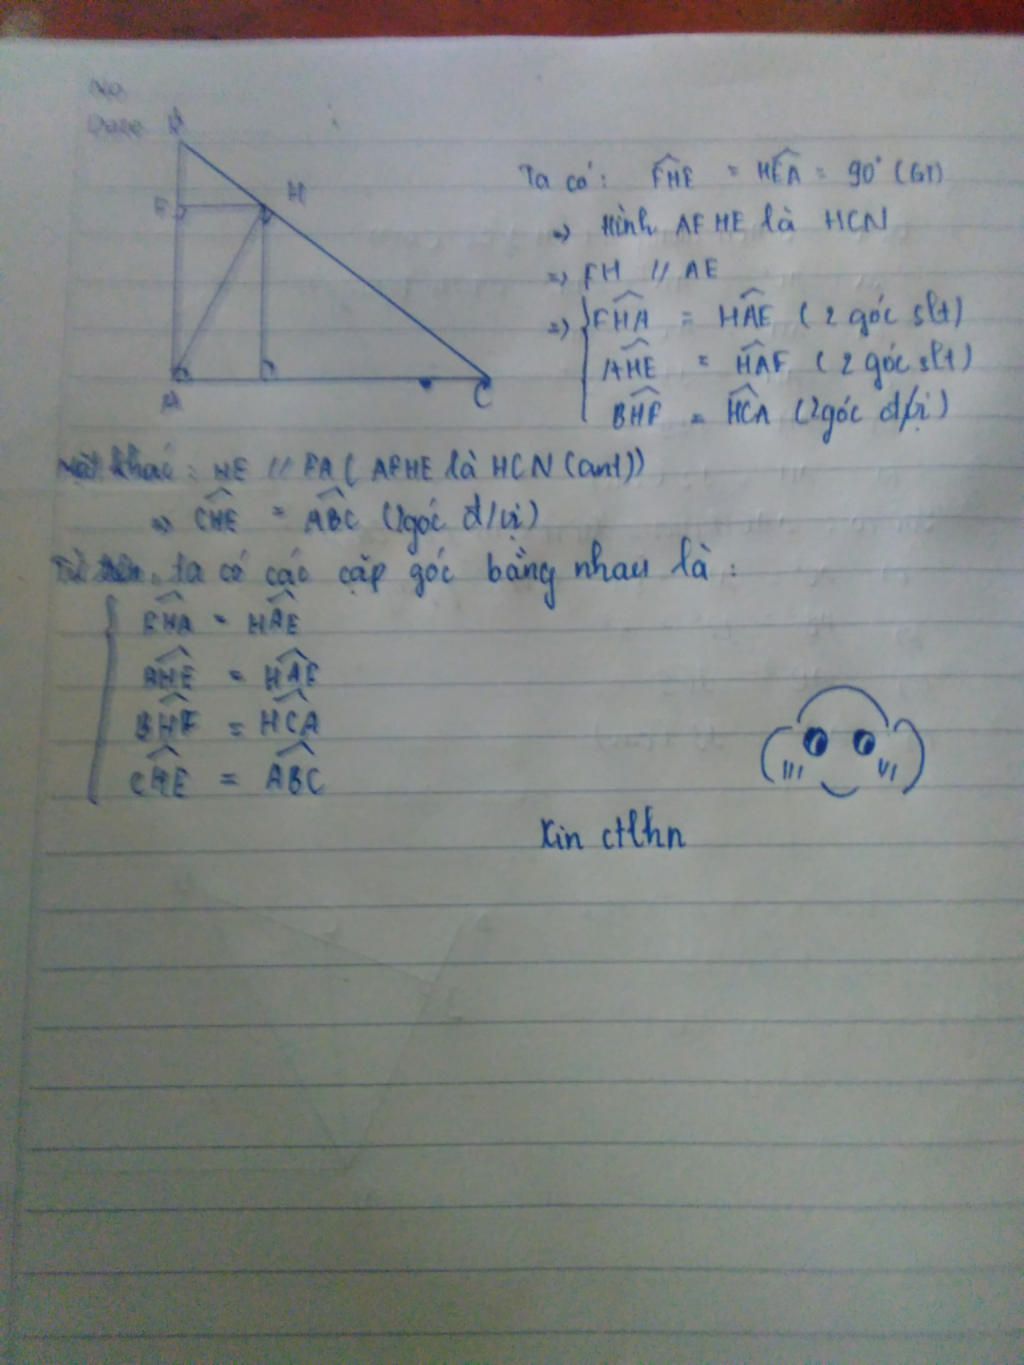 No.
Date
B
F
H
A
C
Ta có: FHE = HEA = 90° (GT)
=> Hình AFHE là HCN
=> FH // AE
=> FHA = HAE ( 2 góc slt)
AHE = HAF ( 2 góc slt)
BHF = HCA (2góc đ/vị)
Mặt khác: HE // FA ( AFHE là HCN (cmt))
=> CHE = ABC (2góc đ/vị)
Từ trên, ta có các cặp góc bằng nhau là:
FHA = HAE
AHE = HAF
BHF = HCA
CHE = ABC
Xin ctlhn